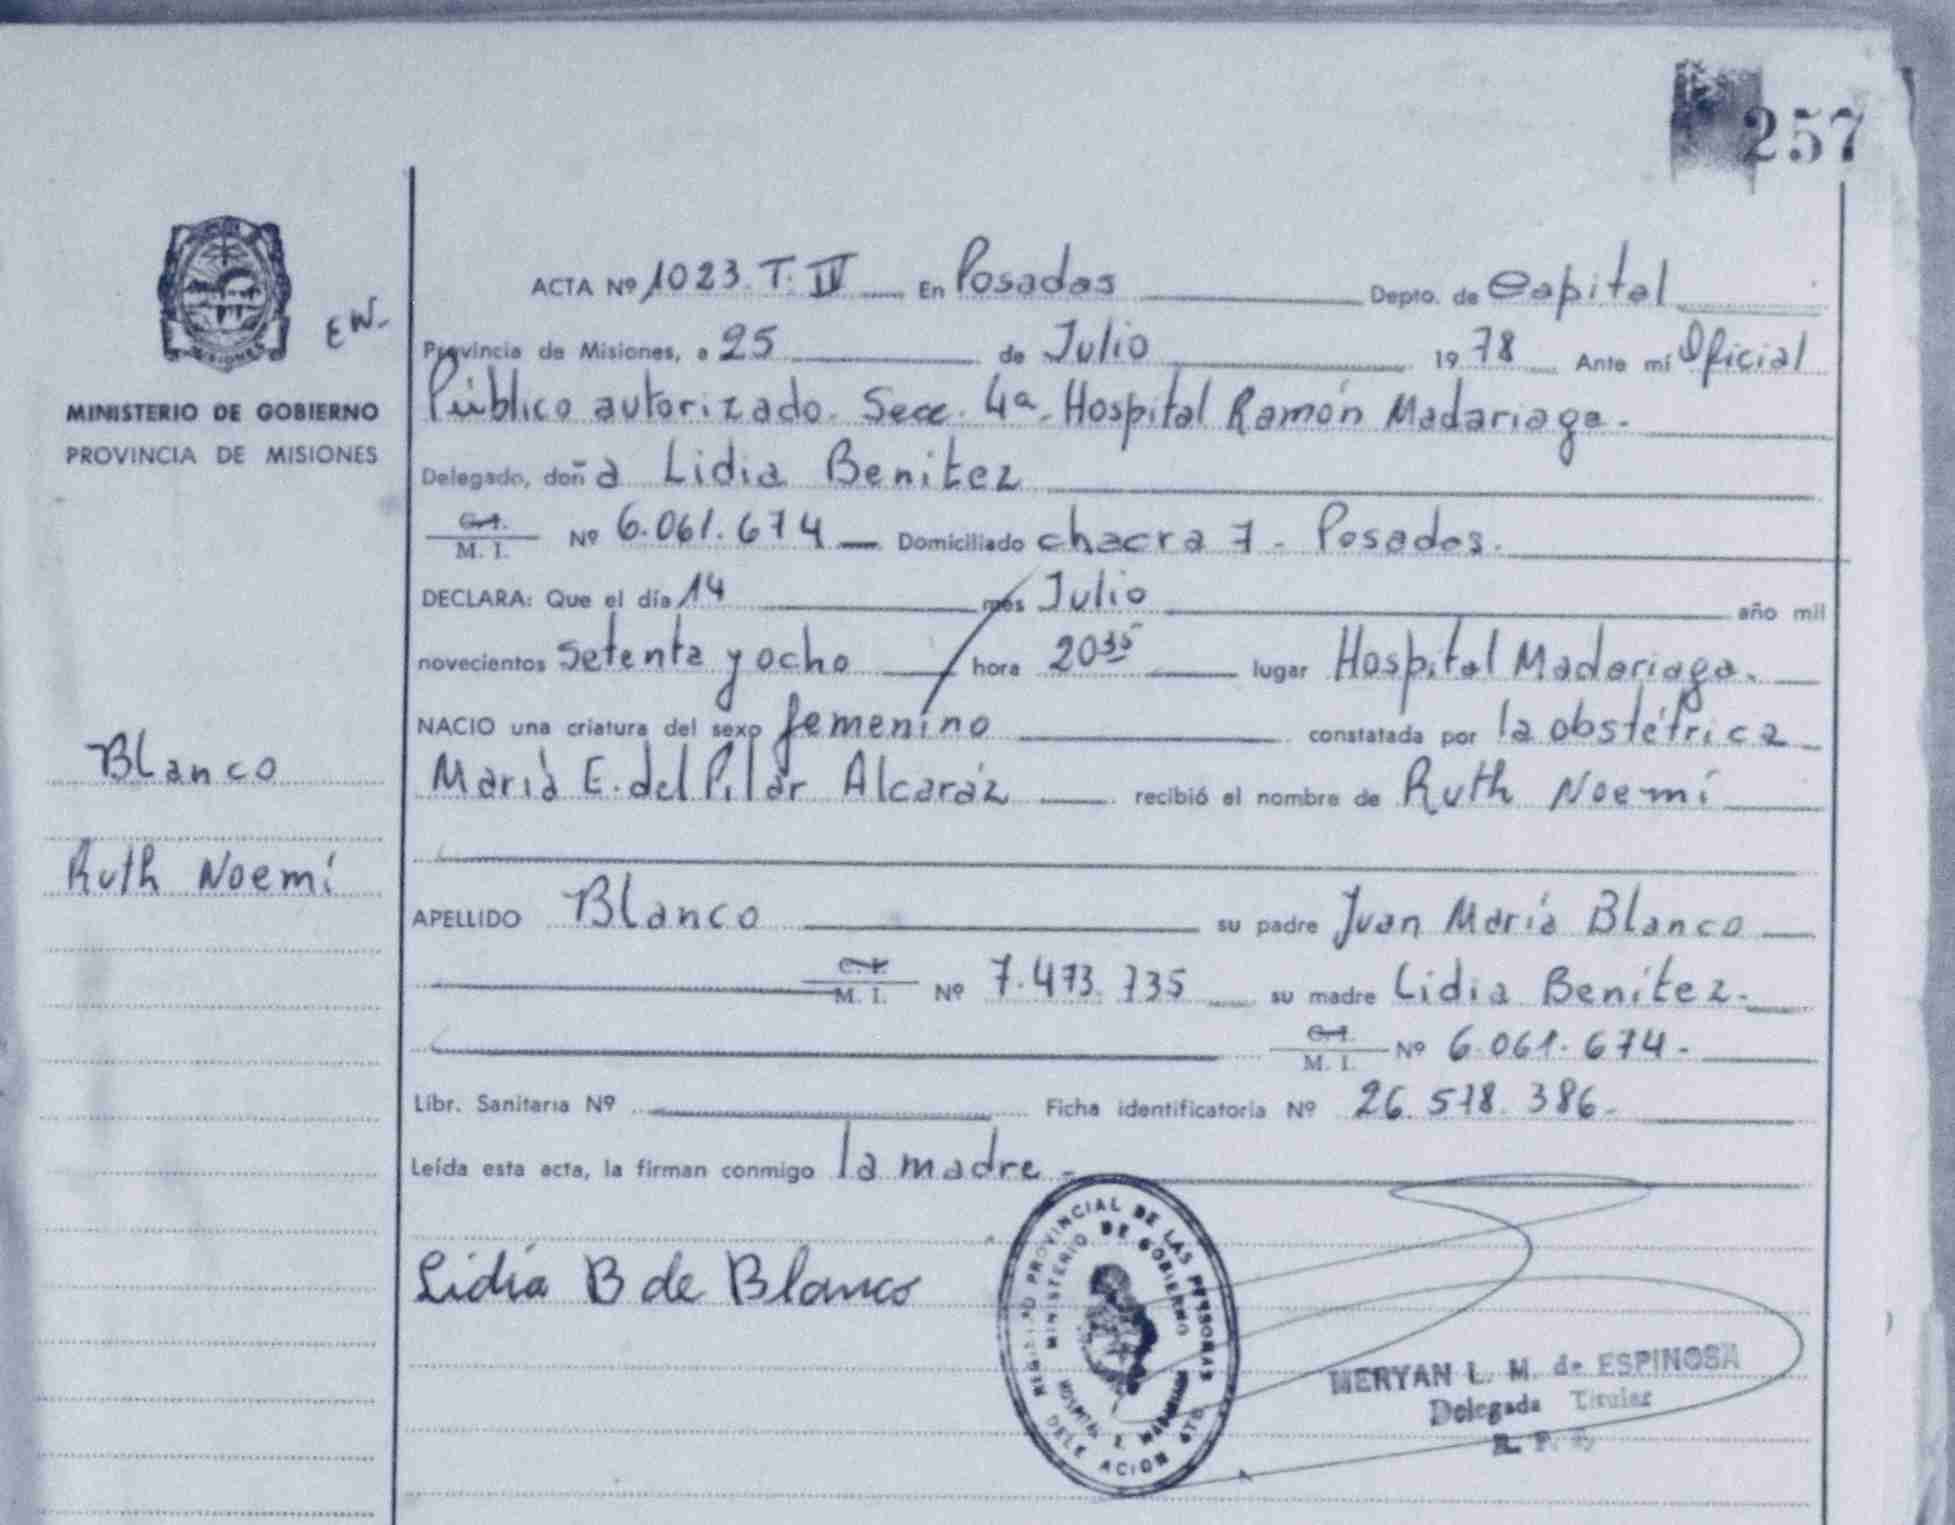 257
ACTA Nº 1023. T. IV En Posadas Depto. de Capital
EW-
Provincia de Misiones, a 25 de Julio 1978 Ante mí Oficial
MINISTERIO DE GOBIERNO
PROVINCIA DE MISIONES
Público autorizado. Secc. 4ª. Hospital Ramón Madariaga.-
Delegado, doña Lidia Benitez
C.I. M. I. Nº 6.061.674 Domiciliado chacra 7 - Posadas.
DECLARA: Que el día 14 mes Julio año mil
novecientos setenta y ocho hora 20 35 lugar Hospital Madariaga.
NACIO una criatura del sexo femenino constatada por la obstétrica
Blanco
María E. del Pilar Alcaráz recibió el nombre de Ruth Noemí
Ruth Noemí
APELLIDO Blanco su padre Juan María Blanco
C.I. M. I. Nº 7.473.735 su madre Lidia Benítez.
C.I. M. I. Nº 6.061.674-
Libr. Sanitaria Nº Ficha identificatoria Nº 26.578.386-
Leída esta acta, la firman conmigo la madre-
Lidia B de Blanco
PROVINCIAL DE LAS PERSONAS
MINISTERIO DE GOBIERNO
HOSPITAL
MERYAN L. M. de ESPINOSA
Delegada Titular
R. P.